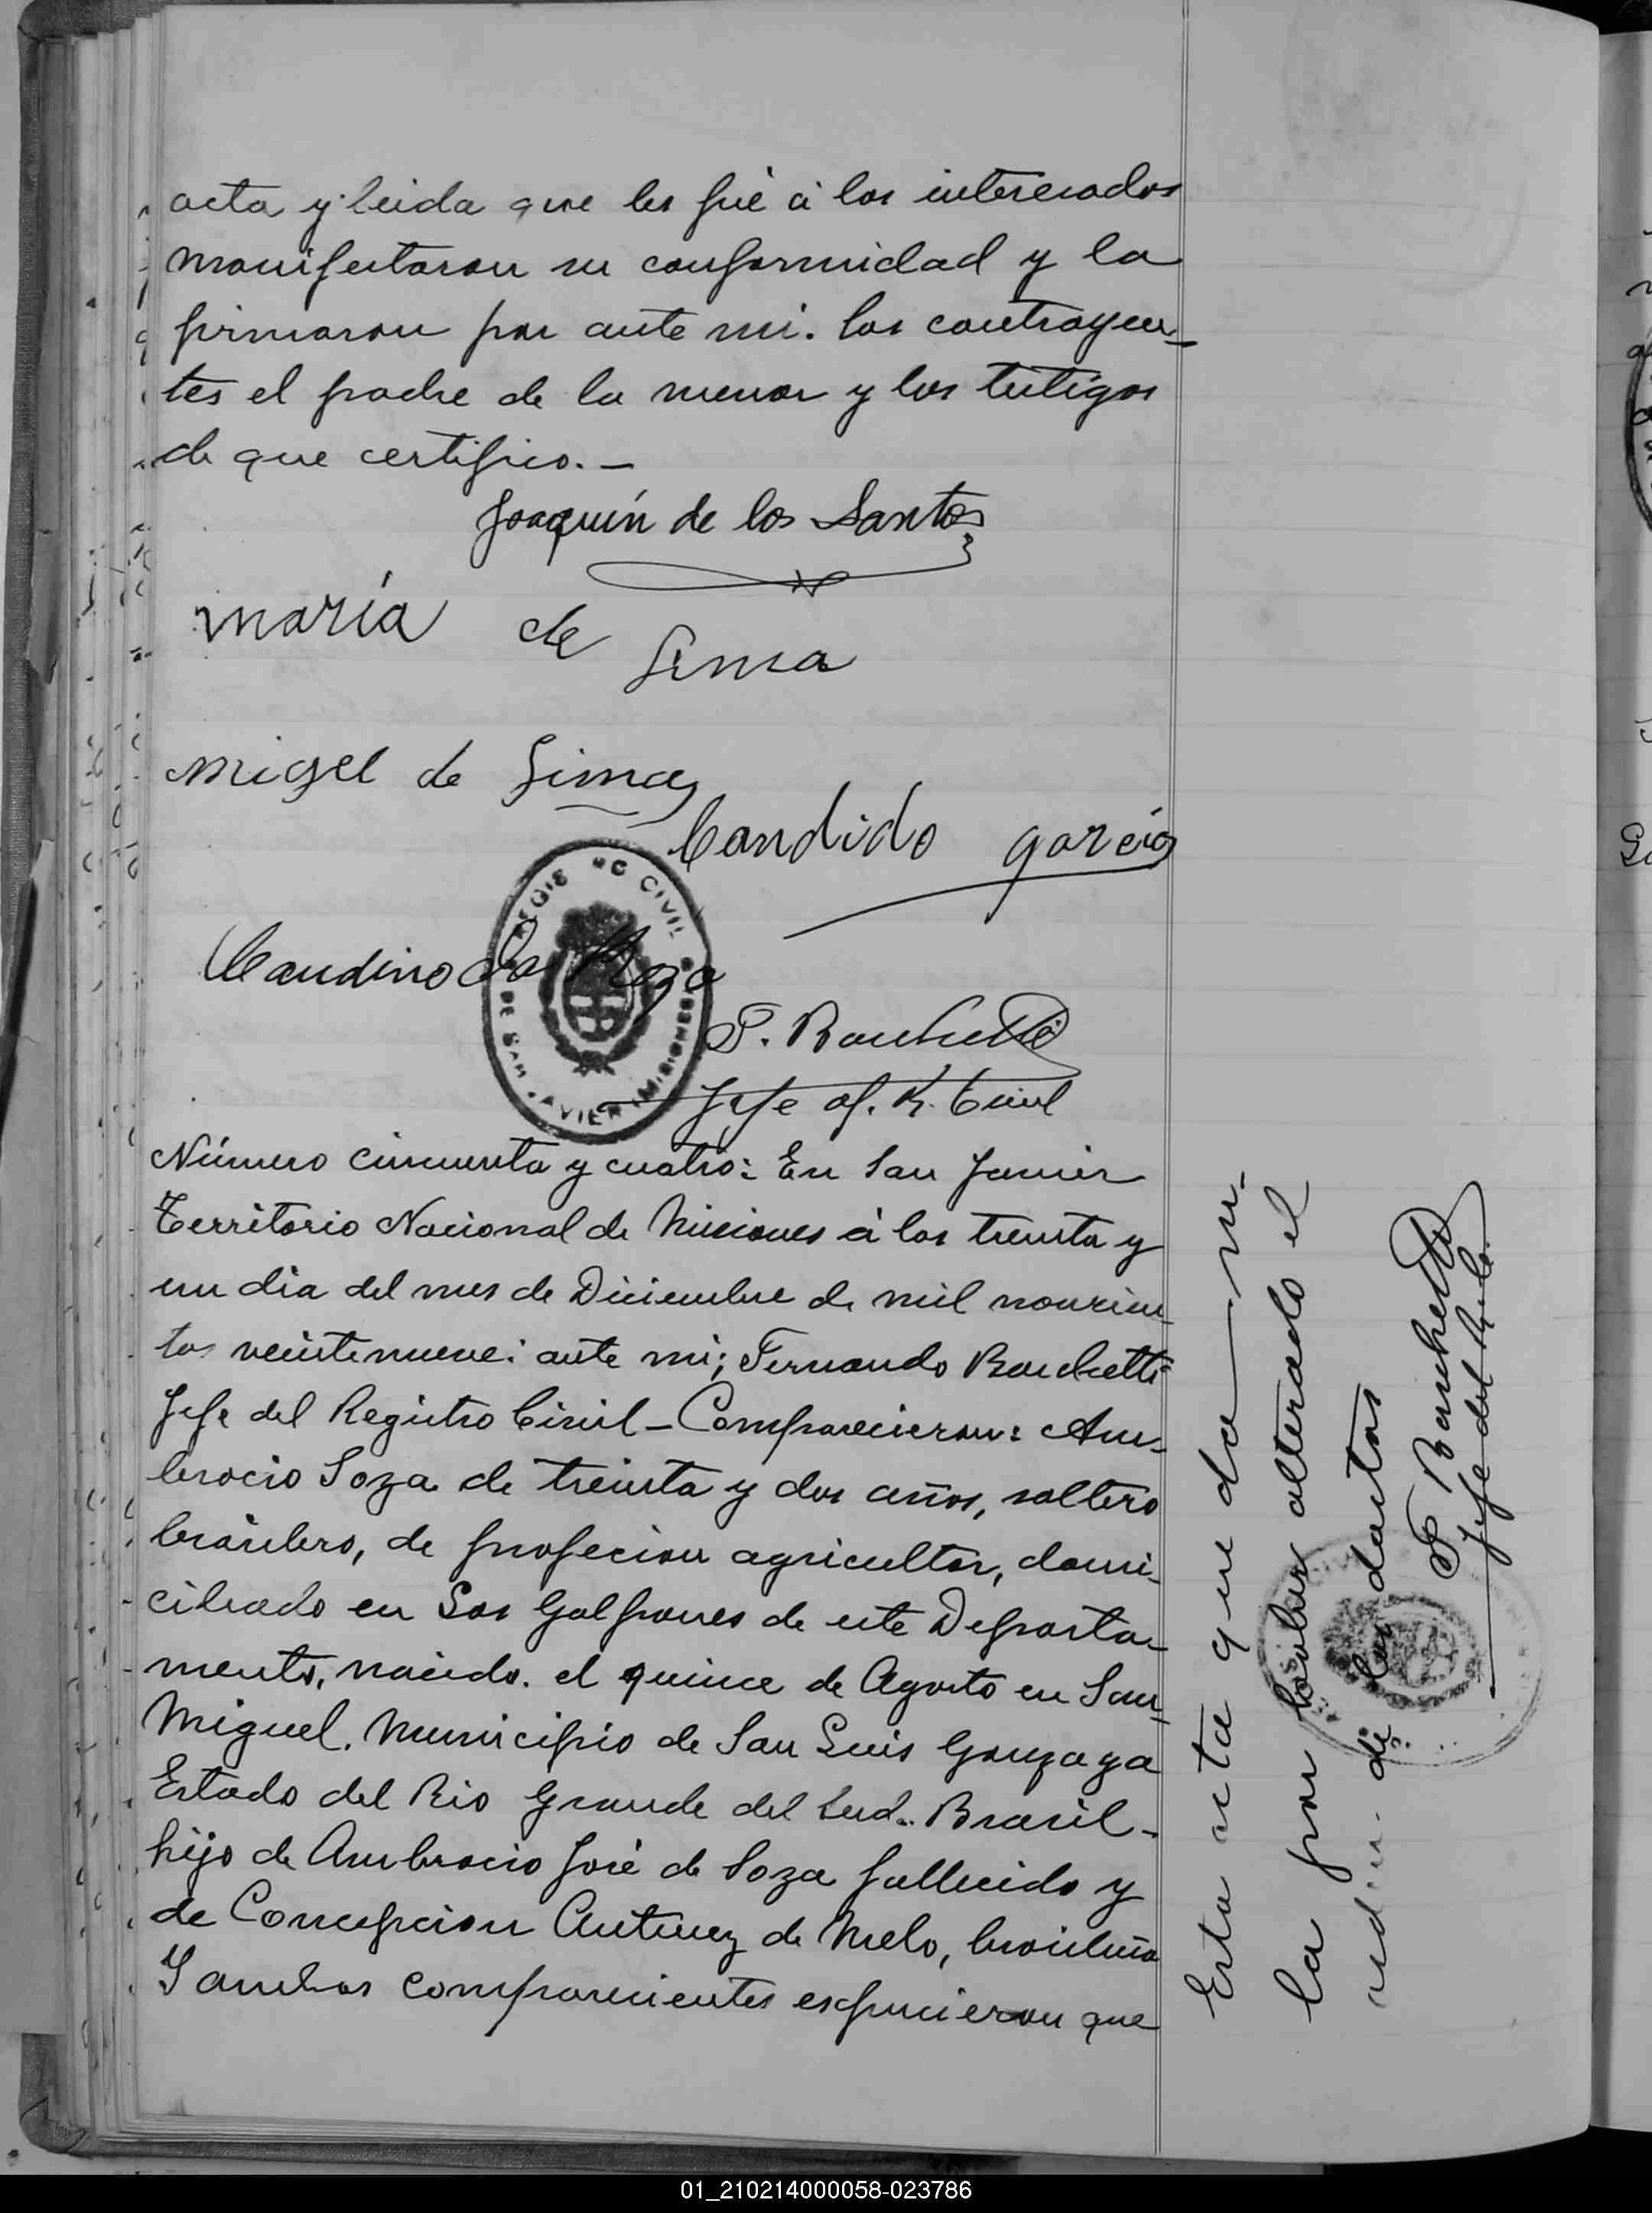 acta y leida que les fué á los interesados
manifestaron su conformidad y la
firmaron por ante mi. los contrayen-
tes el padre de la menor y los testigos
de que certifico.-
Joaquín de los Santos
maría de Lima
Migel de Lima
Candido garcia
REGISTRO CIVIL
DE SAN JAVIER MISIONES
Candino da Roza
F. Banchetti
Jefe of. R. Civil
Número cincuenta y cuatro: En San Javier
Territorio Nacional de Misiones á los treinta y
un dia del mes de Diciembre de mil novecien-
tos veintenueve: ante mi; Fernando Banchetti
Jefe del Registro Civil - Comparecieron: Am-
brocio Soza de treinta y dos años, soltero
brasilero, de profecion agricultor, domi-
ciliado en Los Galpones de este Departa-
mento, nacido. el quince de Agosto en San
Miguel. Municipio de San Luis Gonzaga
Estado del Rio Grande del Sud.. Brasil-
hijo de Ambrocio José de Soza fallecido y
de Concepcion Antunez de Melo, brasileña
Y ambos comparecientes espucieron que
Esta acta queda nu-
la por haber alterado el
orden de los datos
F. Banchetti
Jefe del
01_210214000058-023786